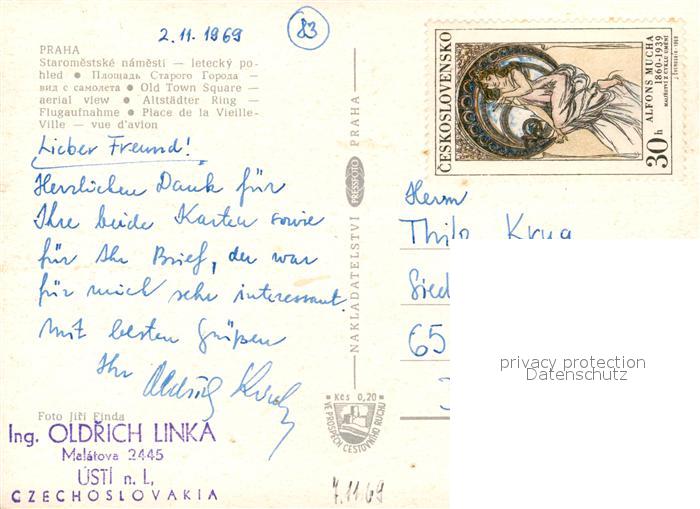 2.11.1969
83
PRAHA
Staroměstské náměstí — letecký po-
hled ● Площадь Старого Города —
вид с самолета ● Old Town Square —
aerial view ● Altstädter Ring —
Flugaufnahme ● Place de la Vieille-
Ville — vue d'avion
Lieber Freund!
Herzlichen Dank für
Ihre beide Karten sowie
für Ihr Brief, der war
für mich sehr interessant.
Mit besten Grüßen
Ihr
Foto Jiří Finda
Ing. OLDŘICH LINKA
Malátova 2445
ÚSTÍ n. L.
CZECHOSLOVAKIA
NAKLADATELSTVÍ PRESSFOTO PRAHA
Kčs 0,20
VE PROSPĚCH CESTOVNÍHO RUCHU
7.11.69
ČESKOSLOVENSKO
ALFONS MUCHA
1860-1939
30 h
Herrn
Thilo Krug
Sied
65
privacy protection
Datenschutz